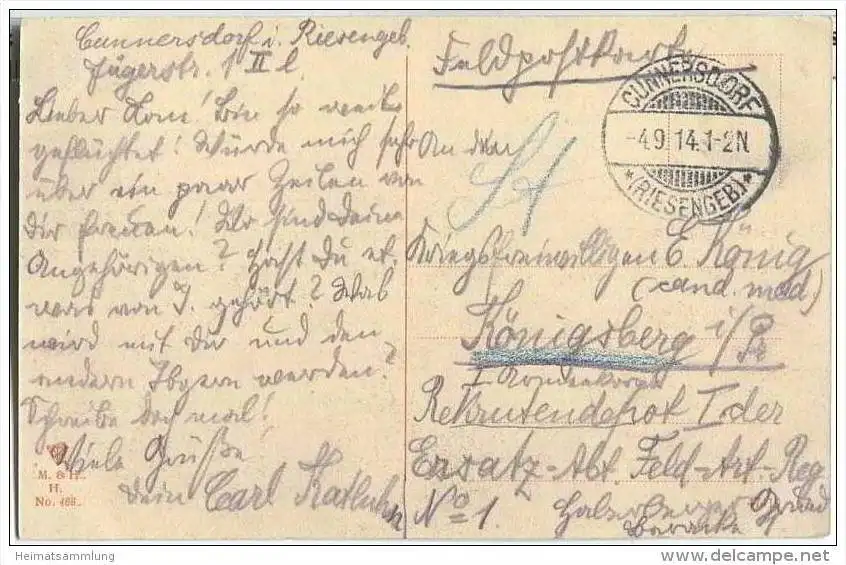 Cunnersdorf i. Riesengeb.
Jägerstr. 1 II l.
Lieber Hom! Bin so weit
geflüchtet! Würde mich sehr
über ein paar Zeilen von
Dir freuen! Wo sind Deine
Angehörigen? Hast Du et-
was von J. gehört? Was
wird mit Dir und den
andern Ibgern werden?
Schreibe doch mal!
Viele Grüße
Dein Carl
M. & H.
H.
No. 468.
Feldpostkarte
CUNNERSDORF
-4.9.14.1-2N.
*(RIESENGEB)*
An den
Kriegsfreiwilligen E. König
(cand. med.)
Königsberg i/Pr
I
Rekrutendepot I der
Ersatz-Abt. Feld-Art.-Reg
No 1. Haberberger Grund
Baracke
Heimatsammlung
www.delcampe.net